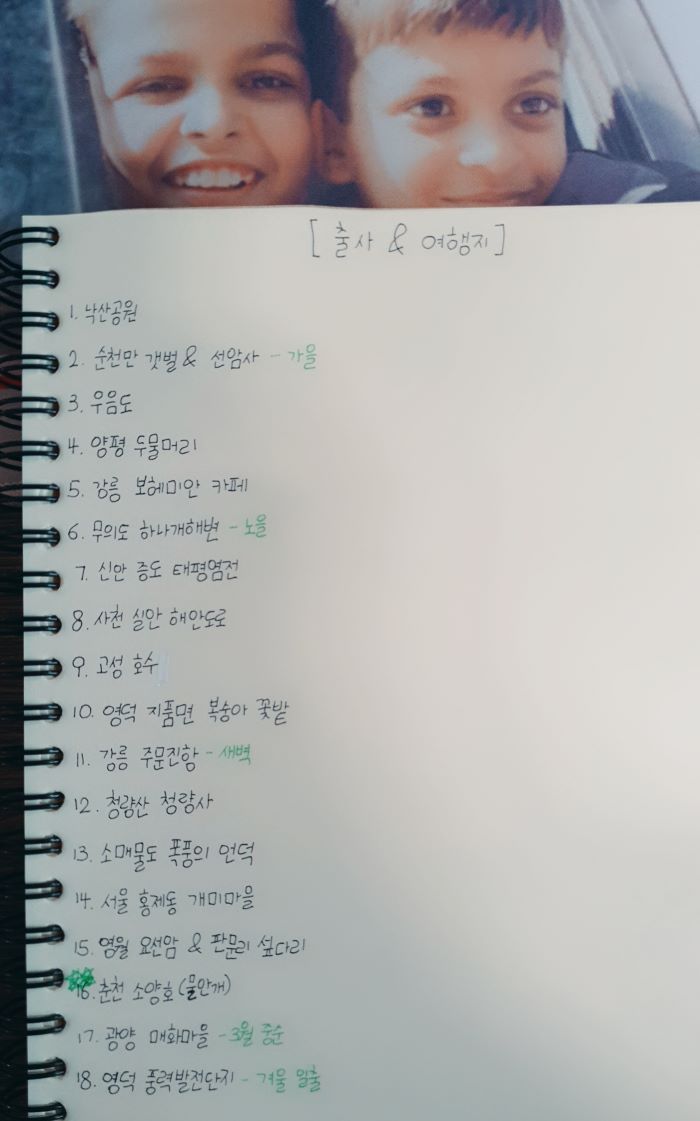 [ 출사 & 여행지 ]
1. 낙산공원
2. 순천만 갯벌 & 선암사 - 가을
3. 우음도
4. 양평 두물머리
5. 강릉 보헤미안 카페
6. 무의도 하나개해변 - 노을
7. 신안 증도 태평염전
8. 사천 실안 해안도로
9. 고성 호수
10. 영덕 지품면 복숭아 꽃밭
11. 강릉 주문진항 - 새벽
12. 청량산 청량사
13. 소매물도 폭풍의 언덕
14. 서울 홍제동 개미마을
15. 영월 요선암 & 판문리 섶다리
16. 춘천 소양호 (물안개)
17. 광양 매화마을 - 3월 중순
18. 영덕 풍력발전단지 - 겨울 일출